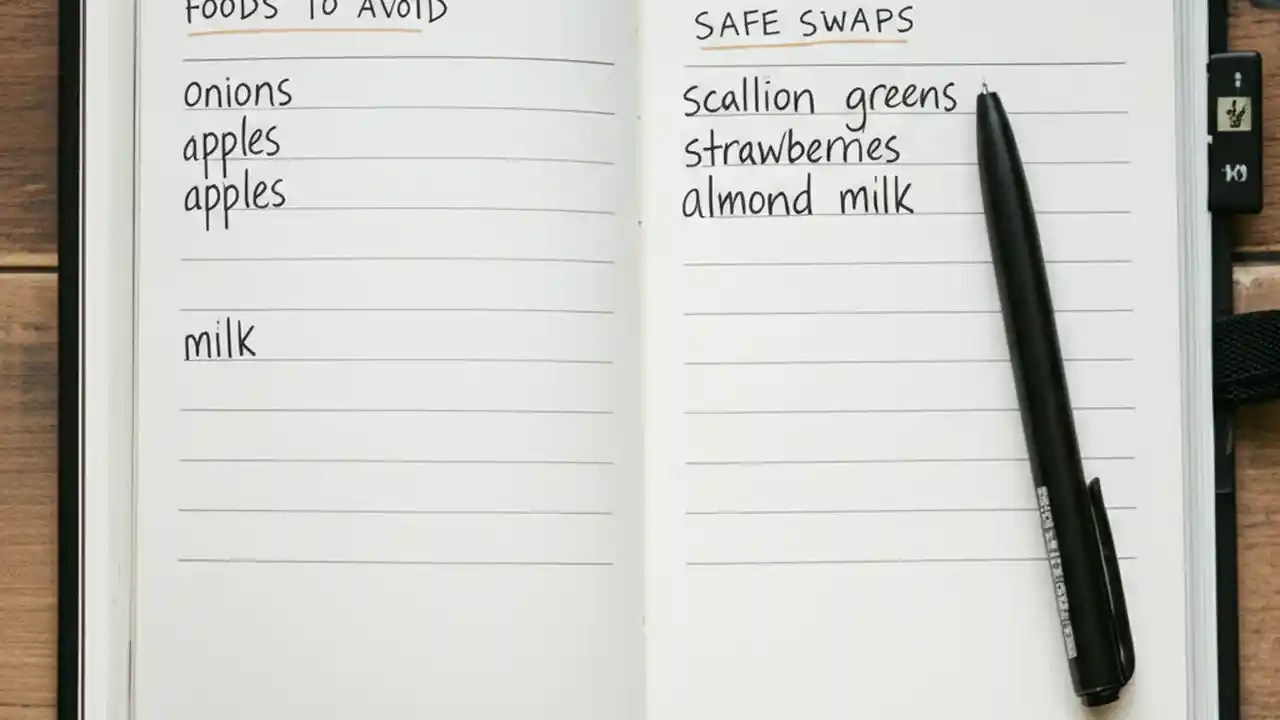 FOODS TO AVOID
onions
apples
apples
milk
SAFE SWAPS
scallion greens
strawberries
almond milk